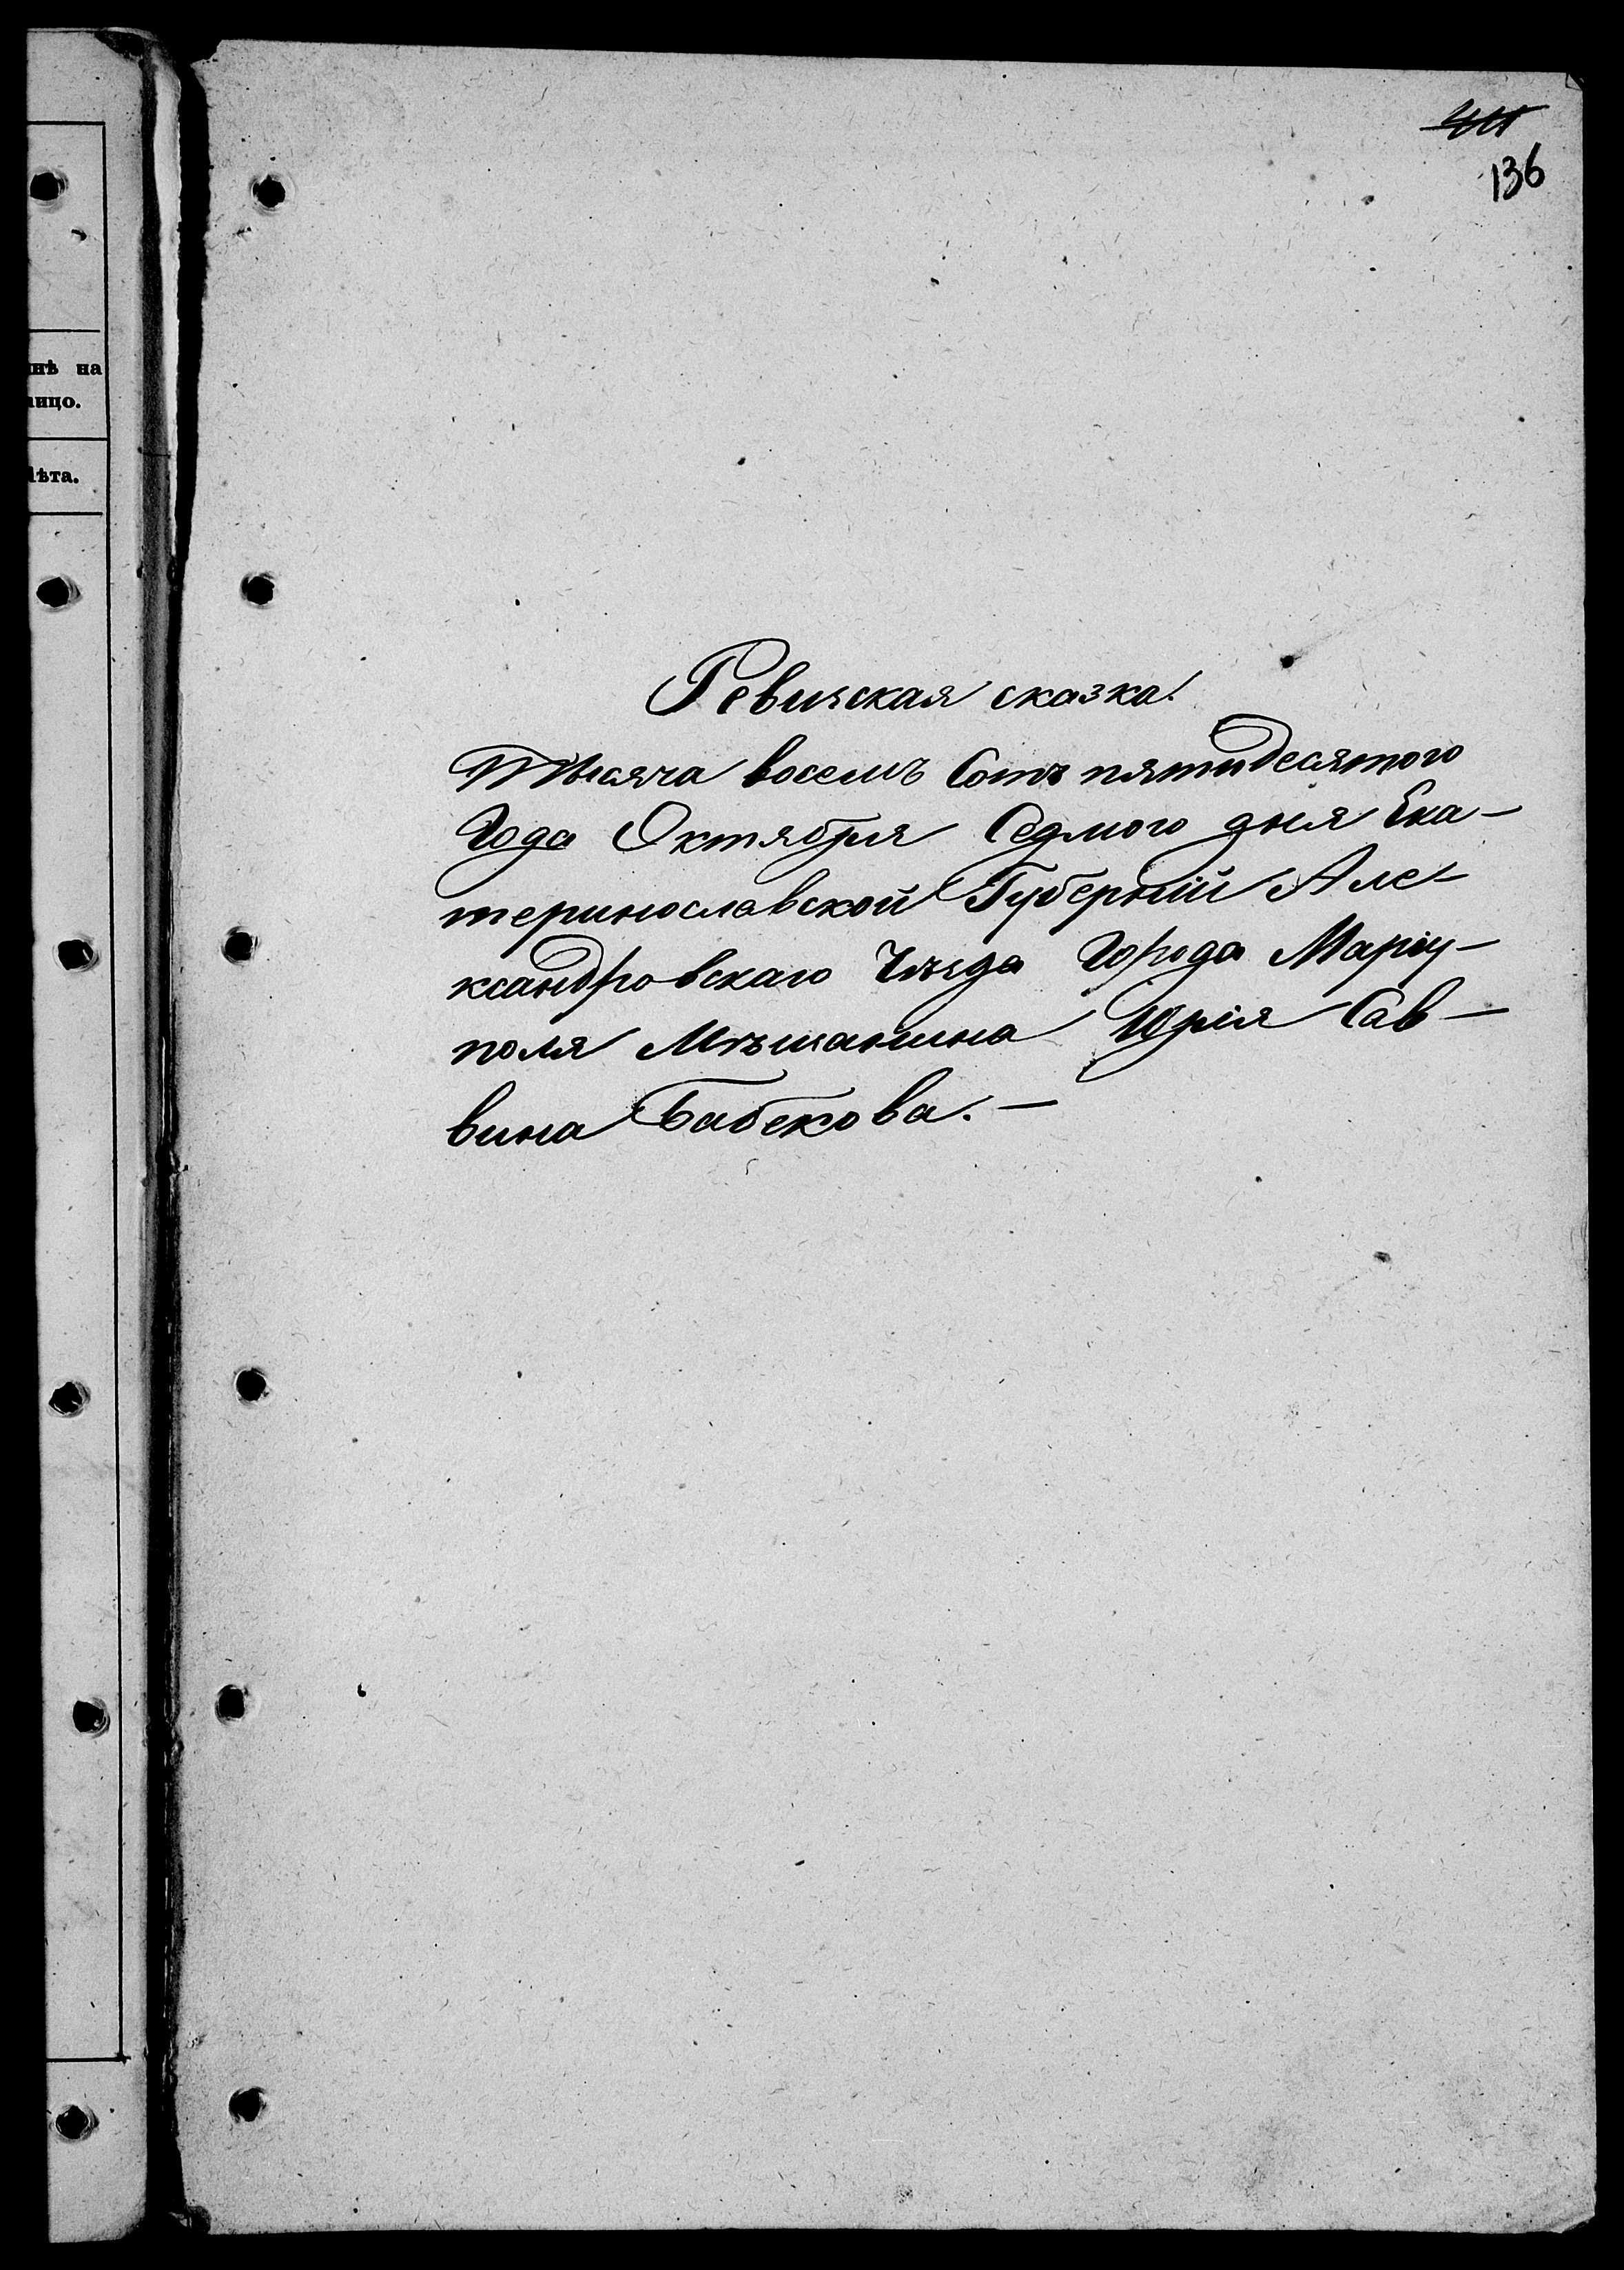 136
нѣ на
ицо.
лѣта.
Ревизская сказка.
Тысяча восемь Сотъ пятидесятого
Года Октября Седмого дня Ека-
теринославской Губерніи Але-
ксандровскаго Уѣзда Города Маріу-
поля Мѣщанина Юрія Сав-
вина Бабекова.-